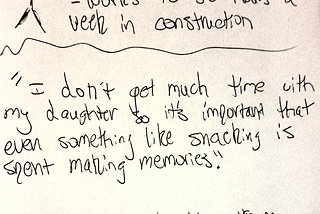 week in construction
"I don't get much time with
my daughter so it's important that
even something like snacking is
spent making memories."